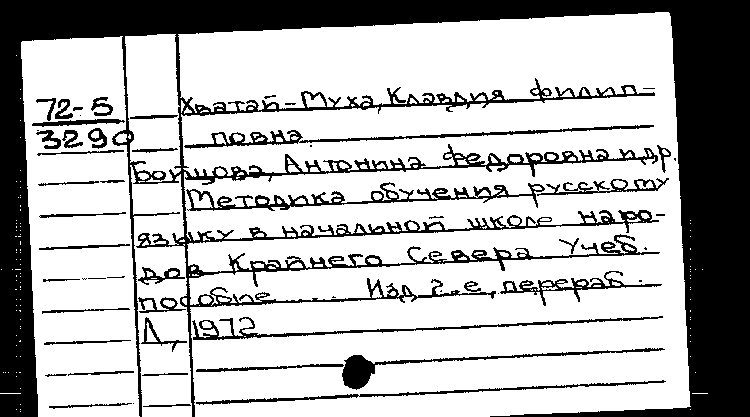 72-5 Хватай-Муха, Клавдия Филип-
3290 повна.
Бойцова, Антонина Федоровна и др.
Методика обучения русскому
языку в начальной школе наро-
дов Крайнего Севера Учеб.
пособие ... Изд 2-е, перераб.
Л, 1972